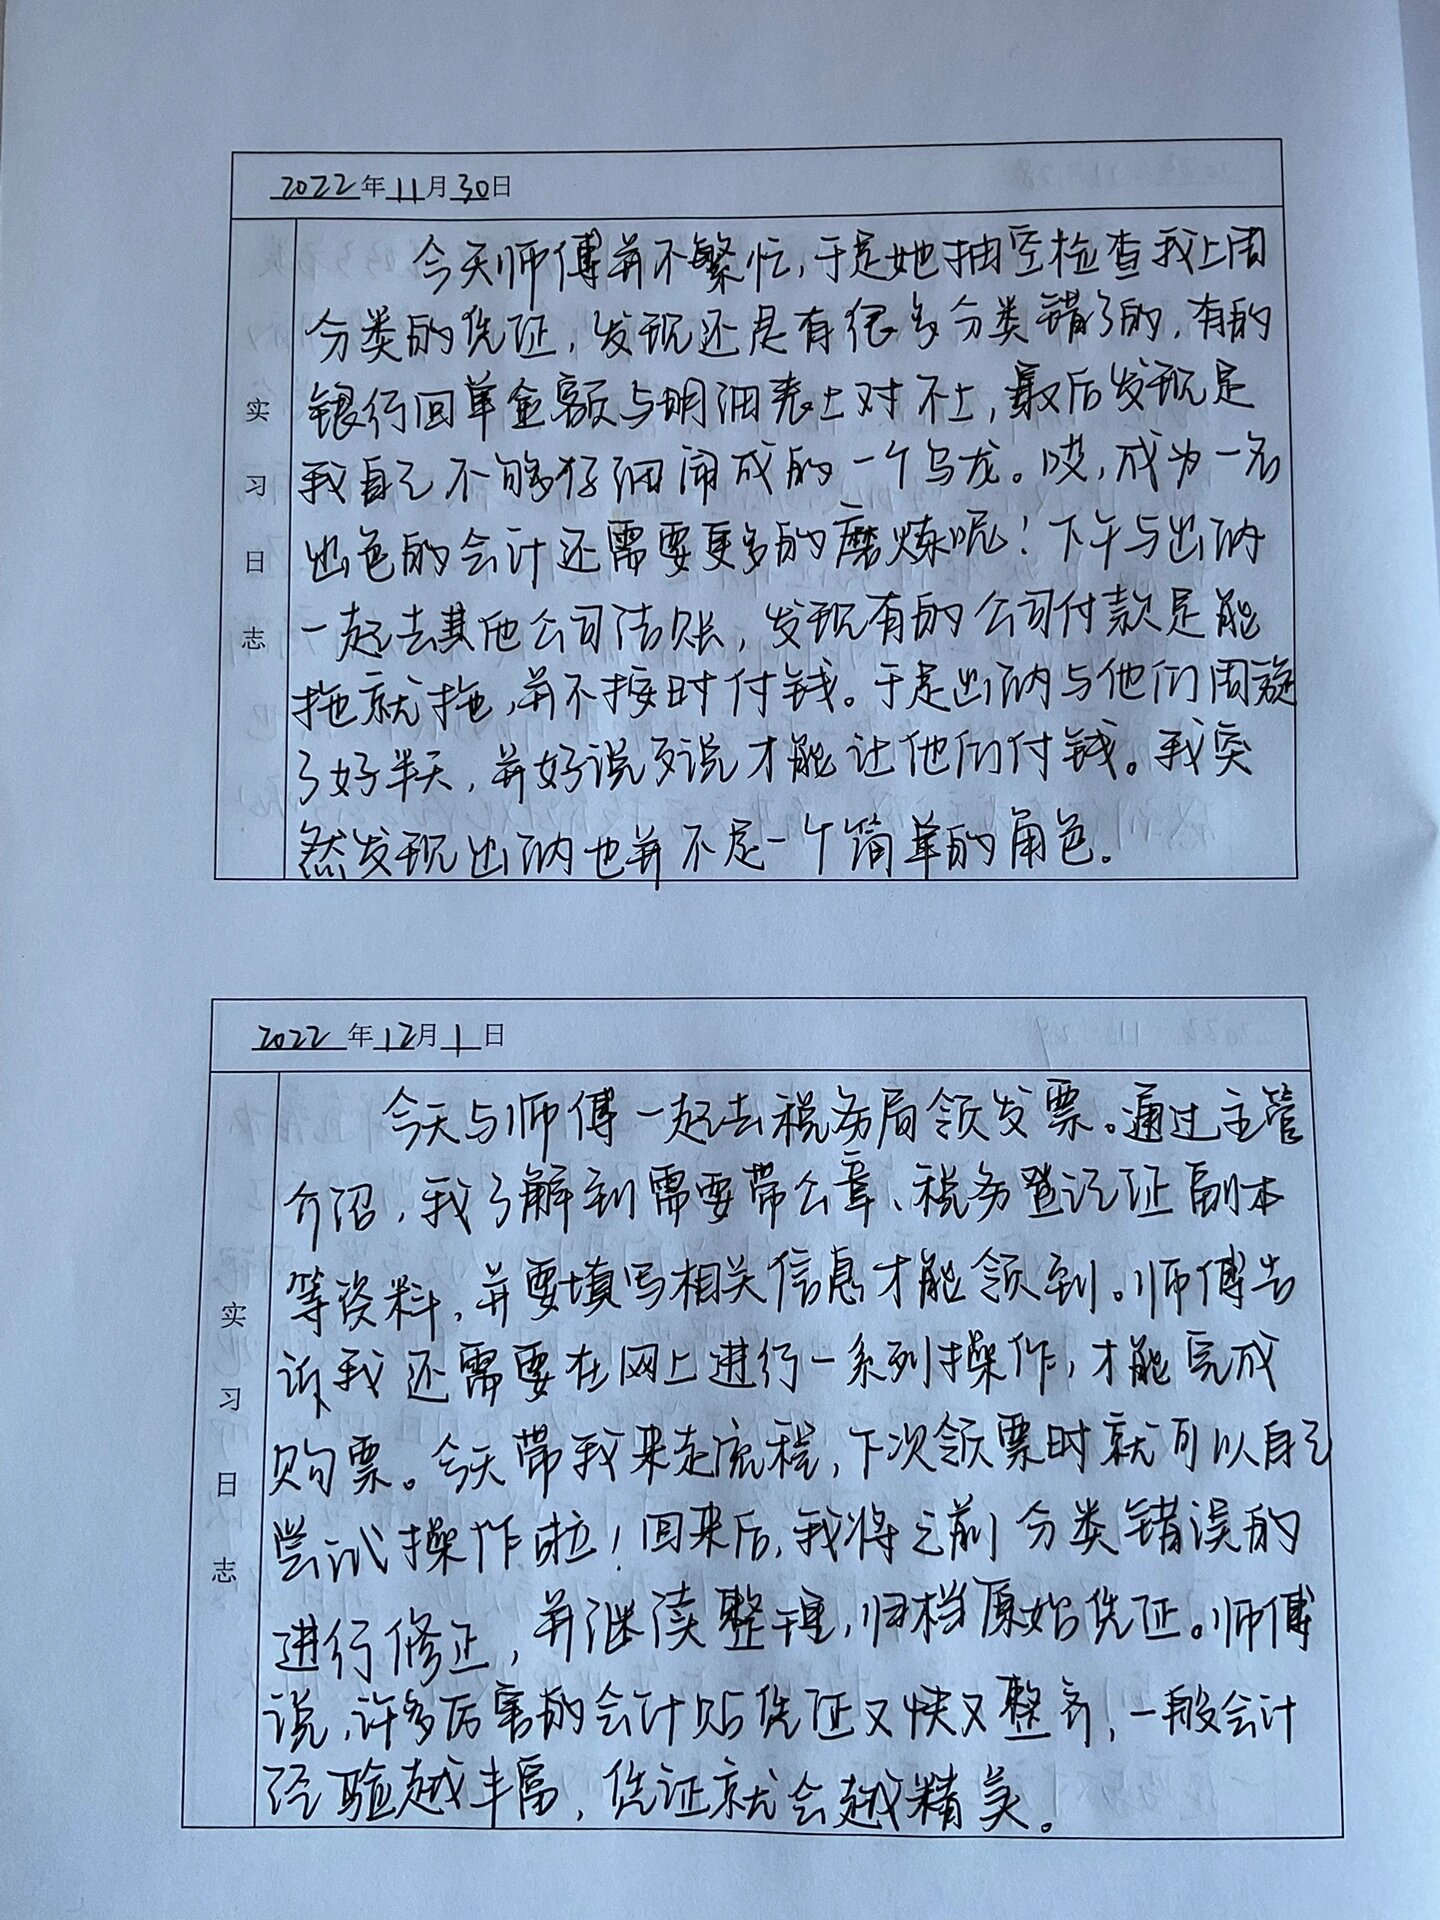 2022年11月30日
实习日志
今天师傅并不繁忙，于是她抽空检查我上周
分类的凭证，发现还是有很多分类错了的，有的
银行回单金额与明细表上对不上，最后发现是
我自己不够仔细闹成的一个乌龙。哎，成为一名
出色的会计还需要更多的磨炼呢！下午与出纳
一起去其他公司结账，发现有的公司付款是能
拖就拖，并不按时付钱。于是出纳与他们周旋
了好半天，并好说歹说才能让他们付钱。我突
然发现出纳也并不是一个简单的角色。
2022年12月1日
实习日志
今天与师傅一起去税务局领发票。通过主管
介绍，我了解到需要带公章、税务登记证副本
等资料，并要填写相关信息才能领到。师傅告
诉我还需要在网上进行一系列操作，才能完成
购票。今天带我来走流程，下次领票时就可以自己
尝试操作啦！回来后，我将之前分类错误的
进行修正，并继续整理，归档原始凭证。师傅
说，许多厉害的会计贴凭证又快又整齐，一般会计
经验越丰富，凭证就会越精美。